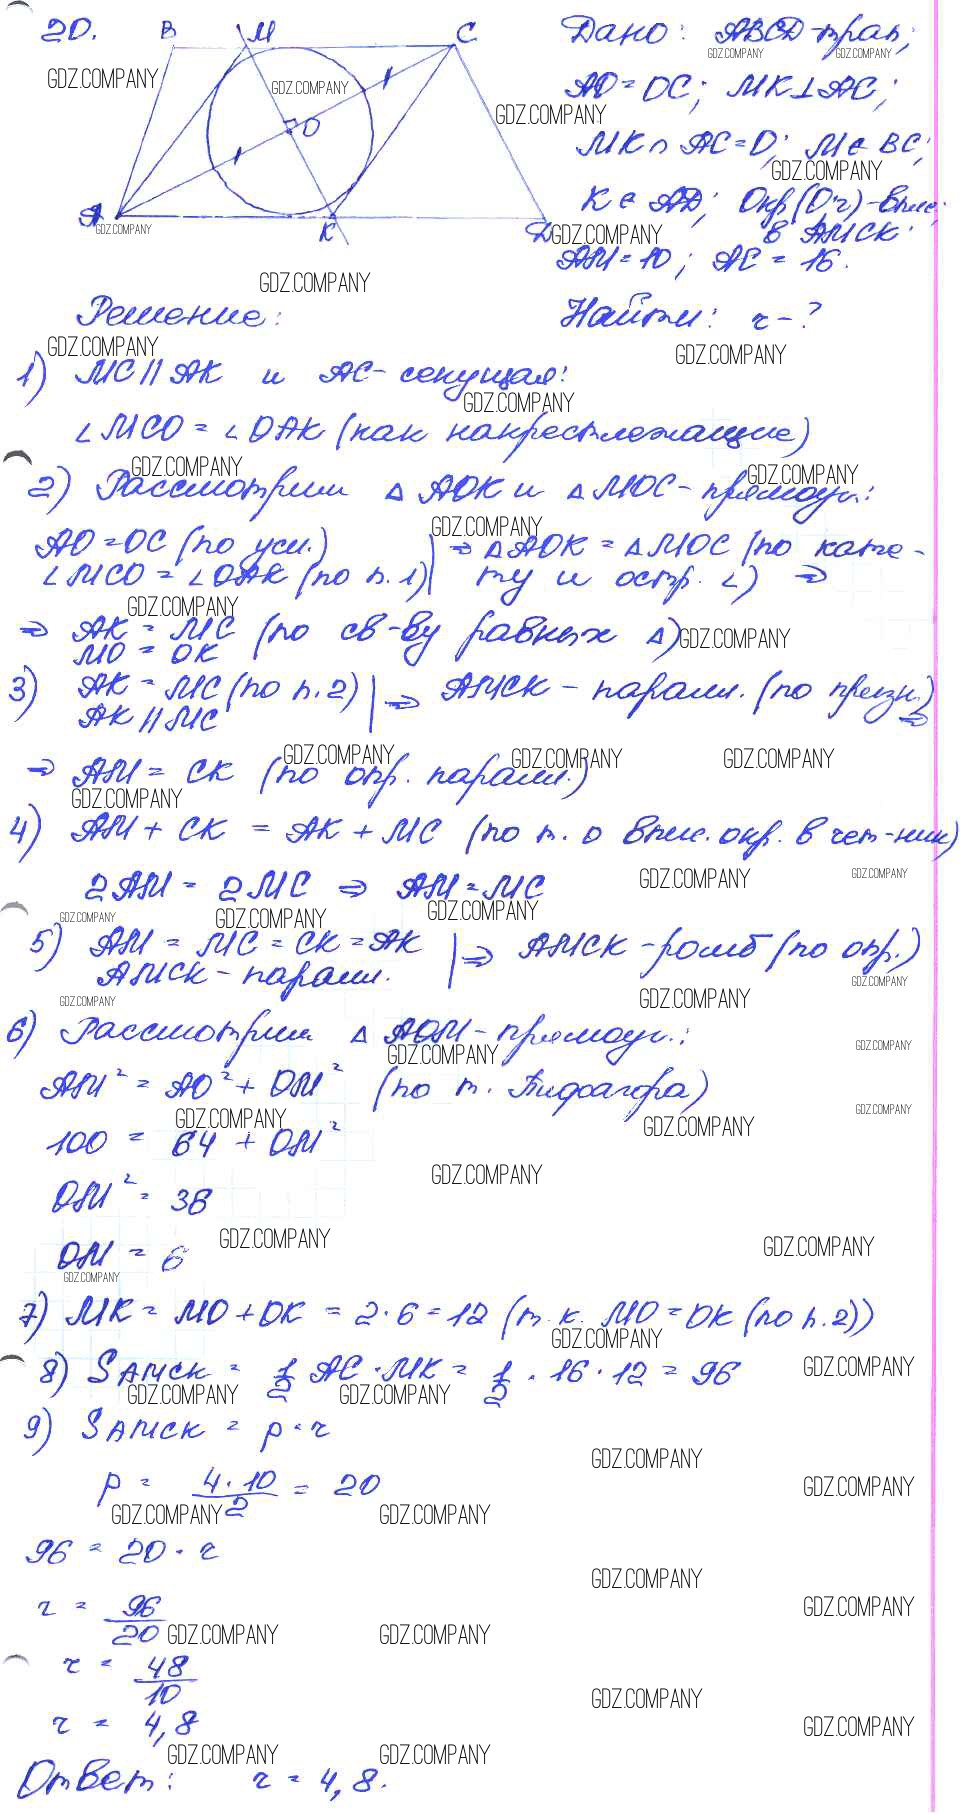 20.
B M C
O
A K D
Дано: ABCD-трап;
AO=OC; MK⊥AC;
MK∩AC=O; M∈BC;
K∈AD; Окр(O;r)-впис.
в AMCK.
AM=10; AC=16.
Решение:
Найти: r-?
1) MC||AK и AC-секущая:
∠MCO=∠OAK (как накрестлежащие)
2) Рассмотрим △AOK и △MOC-прямоуг.:
AO=OC (по усл.) | ⇒ △AOK=△MOC (по кате-
∠MCO=∠OAK (по п.1) | ту и остр. ∠) ⇒
⇒ AK=MC (по св-ву равных △)
MO=OK
3) AK=MC (по п.2) | ⇒ AMCK-паралл. (по призн.)
AK||MC ⇒
⇒ AM=CK (по опр. паралл.)
4) AM+CK=AK+MC (по т. о впис. окр. в чет-ник)
2AM=2MC ⇒ AM=MC
5) AM=MC=CK=AK | ⇒ AMCK-ромб (по опр.)
AMCK-паралл.
6) Рассмотрим △AOM-прямоуг.:
AM²=AO²+OM² (по т. Пифагора)
100=64+OM²
OM²=36
OM=6
7) MK=MO+OK=2·6=12 (т.к. MO=OK (по п.2))
8) SAMCK=1/2 AC·MK=1/2·16·12=96
9) SAMCK=p·r
p=4·10/2=20
96=20·r
r=96/20
r=48/10
r=4,8
Ответ: r=4,8.
GDZ.COMPANY